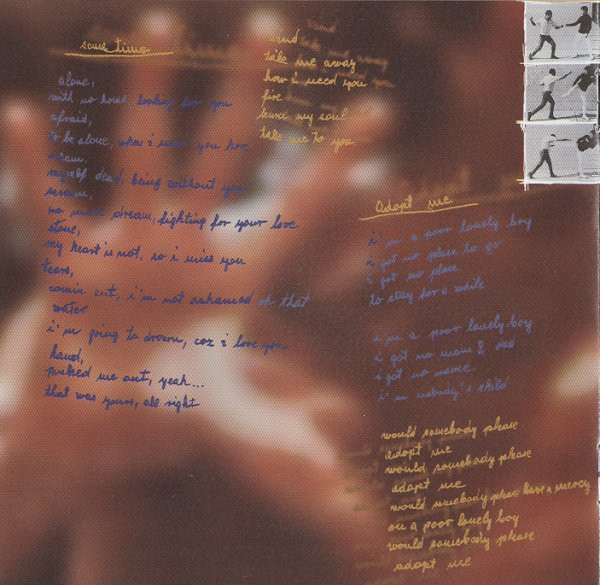 some time
alone,
with no home looking for you
afraid,
to be alone, when i need you here
dream,
myself dead, being without you
scream,
no more dream, fighting for your love
stone,
my heart is not, so i miss you
tears,
comin out, i'm not ashamed of that
water
i'm going to drown, coz i love you
hand,
pushed me out, yeah...
that was yours, all right
wind
take me away
how i need you
fire
burn my soul
take me to you
Adopt me
i'm a poor lonely boy
i got no place to go
i got no place
to stay for a while
i'm a poor lonely boy
i got no mom &
i got no name
i'm nobody's child
would somebody please
adopt me
would somebody please
adopt me
would somebody please have a mercy
on a poor lonely boy
would somebody please
adopt me